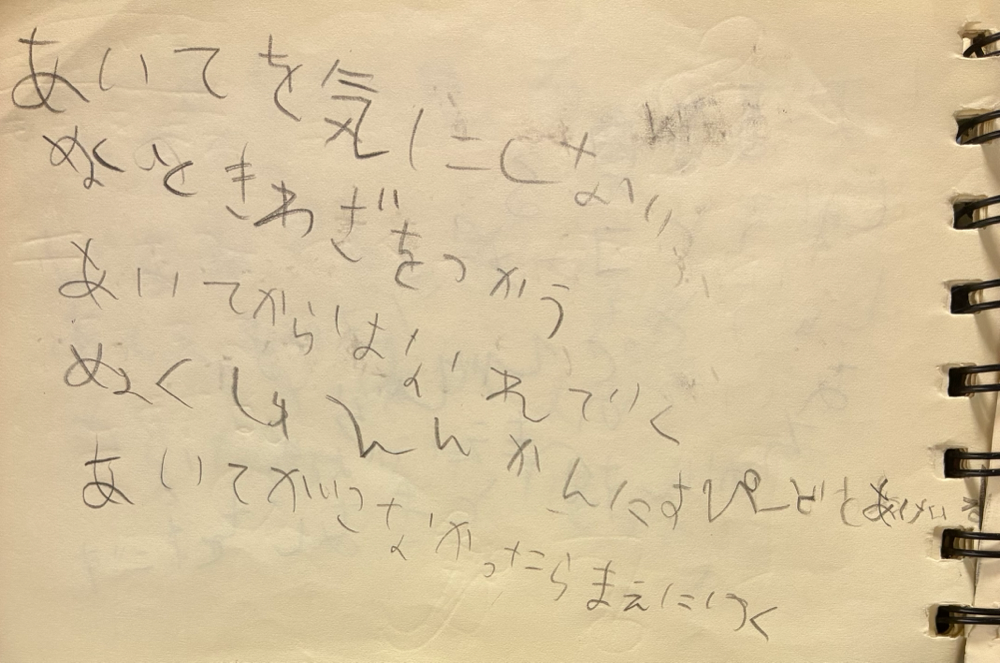 あいてを気にしない
ぬくときわざをつかう
あいてからはなれていく
ぬくしゅんかんにすぴーどをあげる
あいてがこなかったらまえにいく